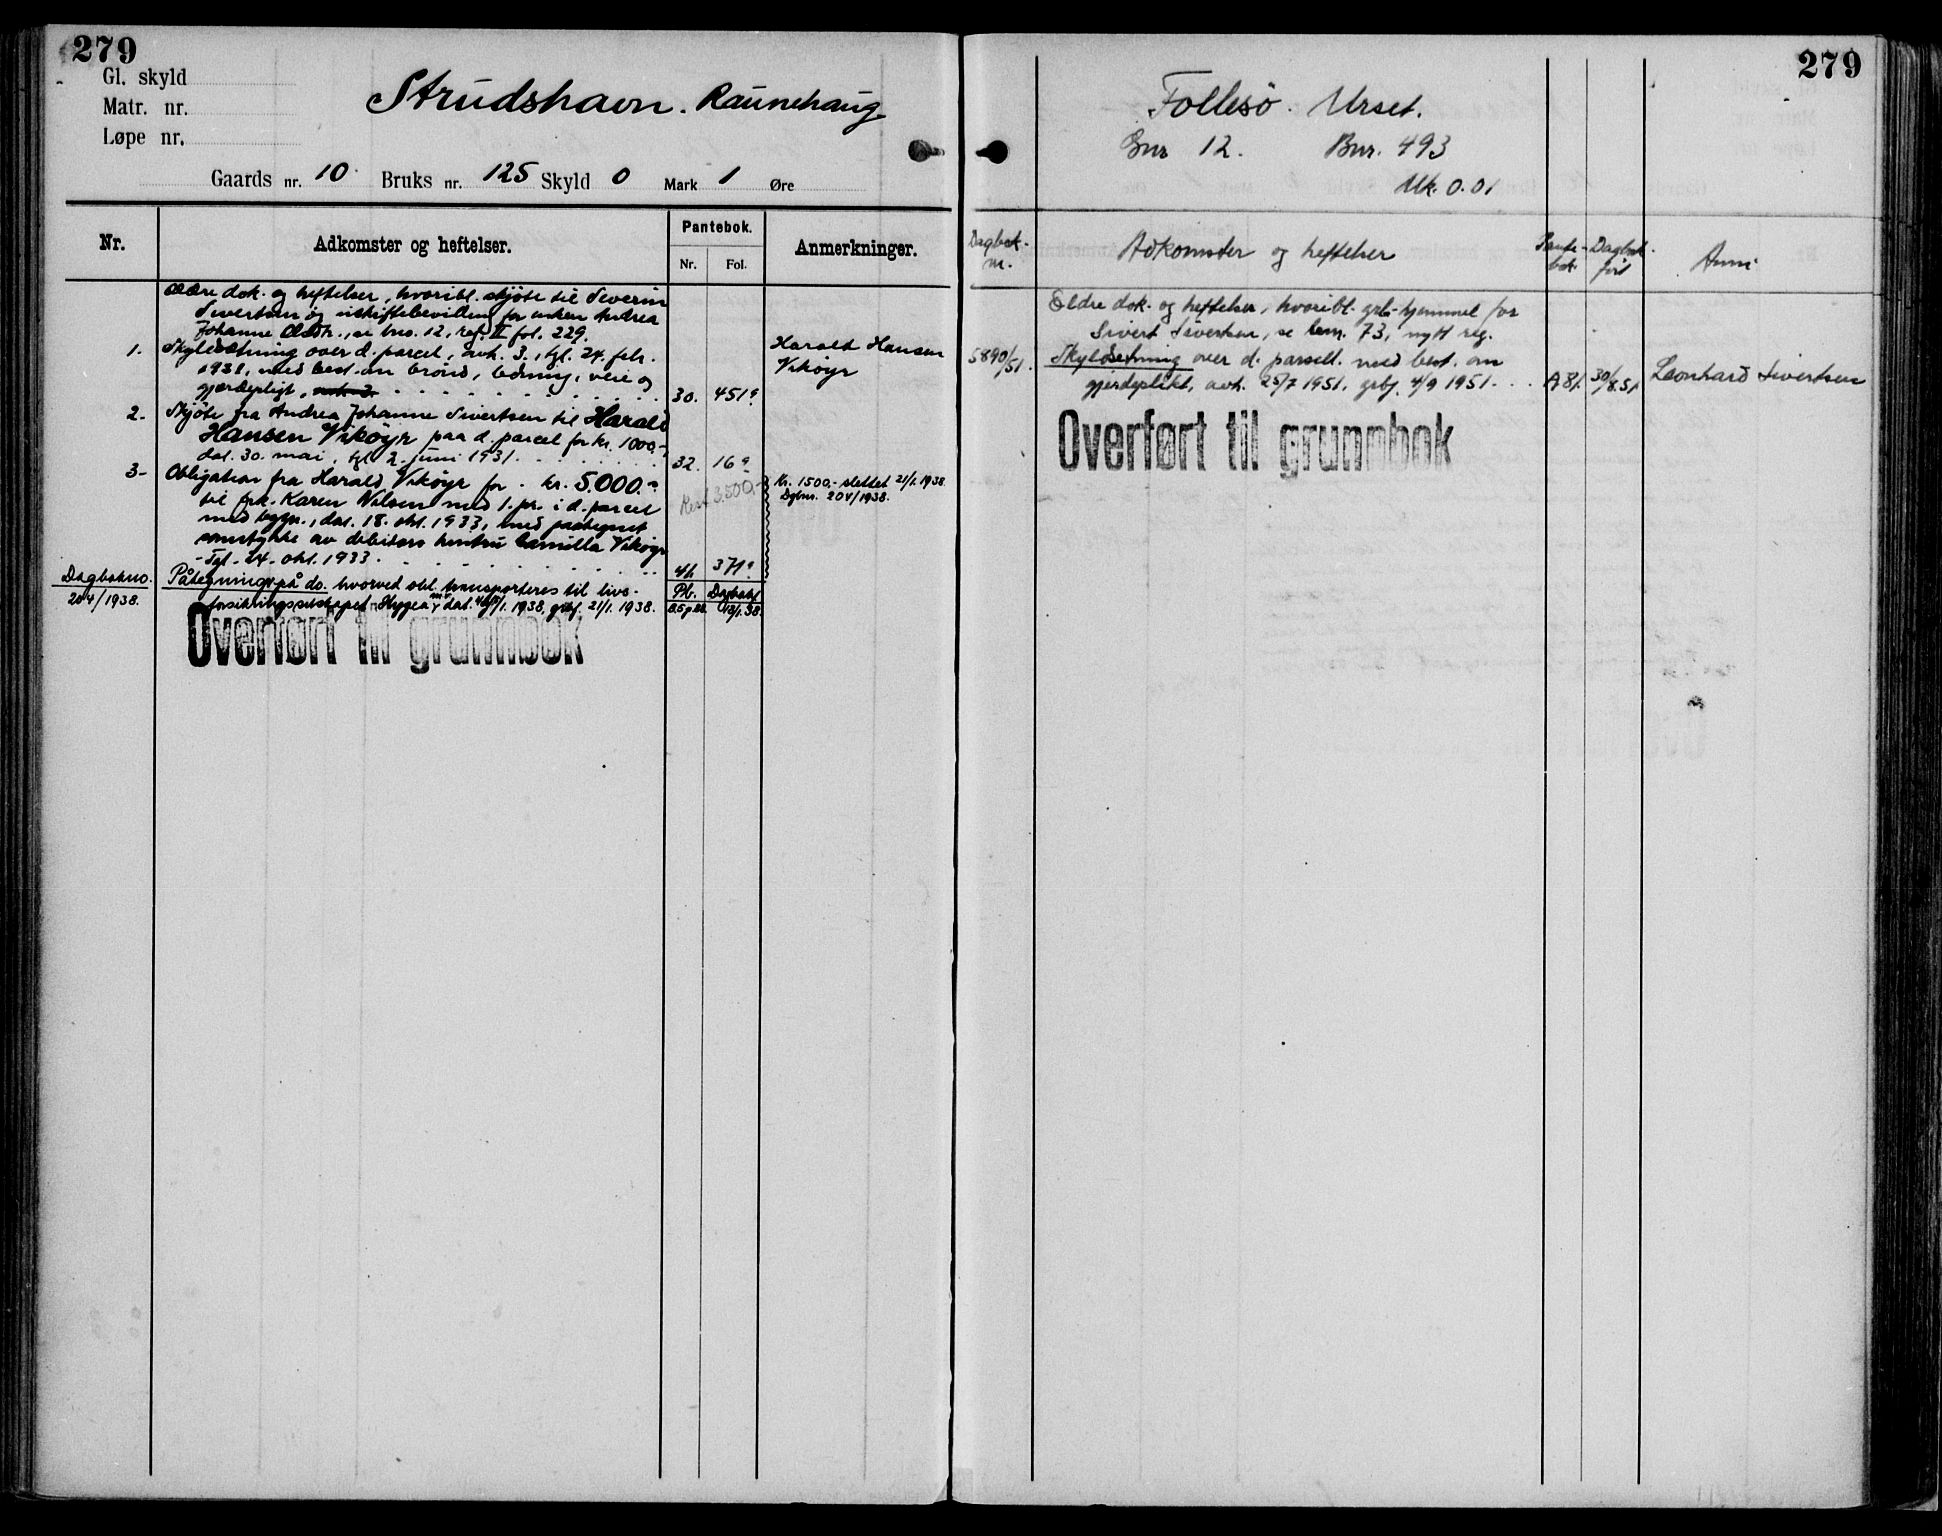 279
Gl. skyld
Matr. nr.
Løpe nr.
Strudshavn. Raunehaug
Gaards nr. 10 Bruks nr. 125 Skyld 0 Mark 1 Øre
Nr. Adkomster og heftelser. Pantebok. Anmerkninger.
Nr. Fol.
Ældre dok. og heftelser, hvoribl. skjøte til Severin
Sivertsen og uskiftebevilling for enken Andrea
Johanne Olsdtr., se bno. 12, reg. II fol. 229.
1. Skyldsætning over d. parcel, avh. 3., tgl. 24. febr.
1931, med best. om brønd, ledning, veie og
gjærdepligt, 30. 451a
Harald Hansen
Vikøyr
2. Skjøte fra Andrea Johanne Sivertsen til Harald
Hansen Vikøyr paa d. parcel for kr. 1000,-
dat. 30. mai, tgl. 2. juni 1931. 32. 16a
3. Obligation fra Harald Vikøyr for kr. 5.000.-
til frk. Karen Nilsen med 1. pr. i d. parcel
med bygn., dat. 18. okt. 1933, med paategnet
samtykke av debitors hustru Camilla Vikøyr
- Tgl. 24. okt. 1933. 41. 371a
Rest 3.500,-
Kr. 1500.- slettet 21/1. 1938.
Dgbnr. 204/1938.
Dagbokno.
204/1938.
Påtegning på do. hvorved obl. transporteres til livs-
forsikringsselskapet "Hygea", dat. 1938, grbf. 21/1. 1938.
Pb. Dagbokf
13/1.38.
Overført til grunnbok
279
Follesö. Urset.
Gnr 12. Bnr. 493
Mk. 0.01
Dagbok-
nr.
Adkomster og heftelser
Pante-
bok
Dagbok-
ført
Anm
Eldre dok. og heftelser, hvoribl. grb-hjemmel for
Sivert Sivertsen, se bnr. 73, nytt reg.
5890/51. Skyldsetning over d. parsell. med best. om
gjerdeplikt, avh. 25/7 1951, grbf. 4/9 1951. A 81. 30/8.51 Leonhard Sivertsen
Overført til grunnbok